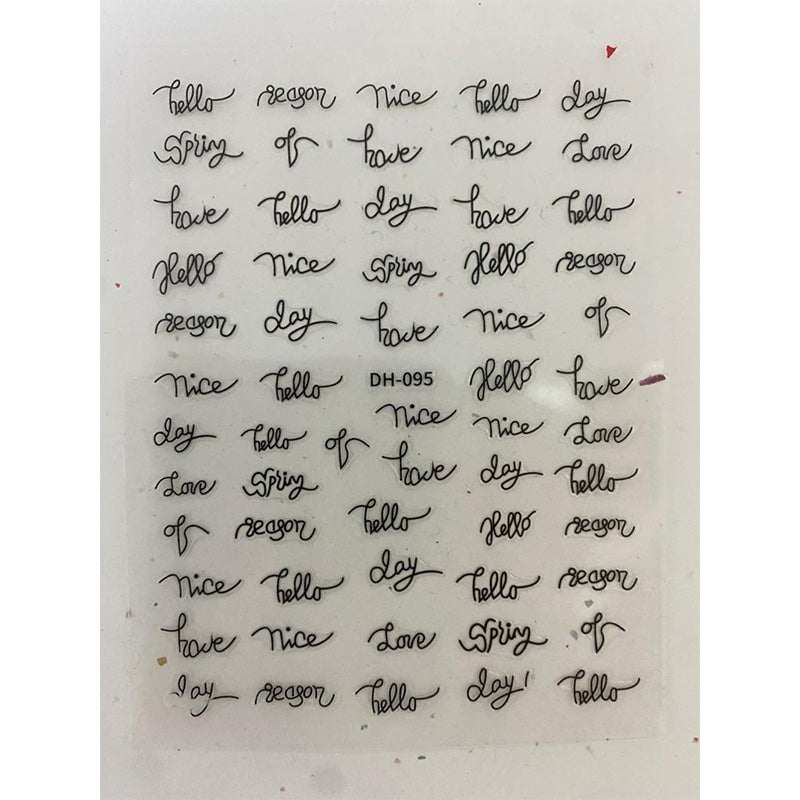 hello reason nice hello day
Spring of have nice Love
have hello day have hello
Hello nice Spring Hello reason
reason day have nice of
nice hello DH-095 Hello have
day hello of nice nice Love
Love Spring have day hello
of reason hello Hello reason
nice hello day hello reason
have nice Love Spring of
day reason hello day hello